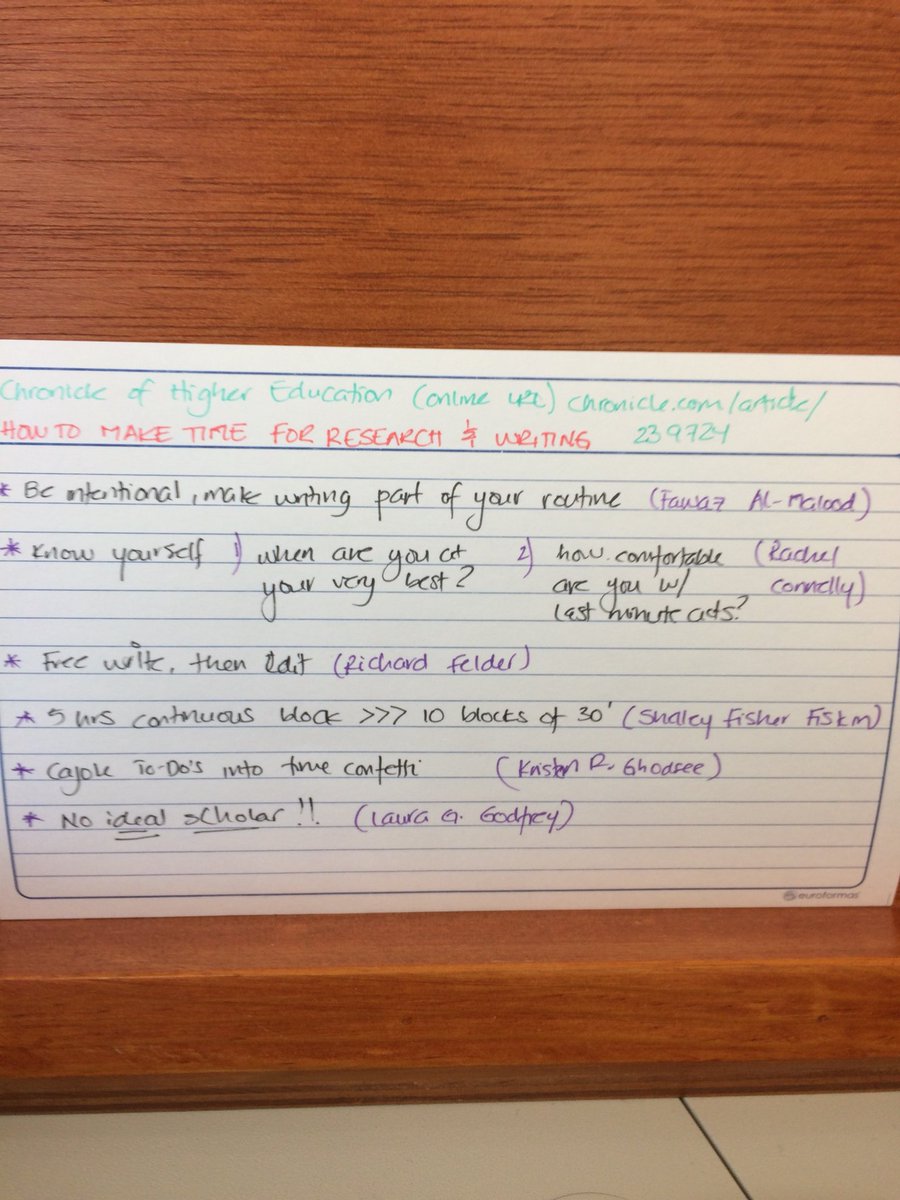 Chronicle of Higher Education (online URL) chronicle.com/article/
HOW TO MAKE TIME FOR RESEARCH & WRITING 239724
* Be intentional, make writing part of your routine (Fawaz Al-Malood)
* Know yourself 1) when are you at 2) how comfortable (Rachel
your very best? are you w/ Connelly)
last minute acts?
* Free write, then Edit (Richard Felder)
* 5 hrs continuous block >>> 10 blocks of 30' (Shaley Fisher Fiskm)
* Cajole To-Do's into time confetti (Kristen R. Ghodsee)
* No ideal scholar!! (Laura G. Godfrey)
euroformas